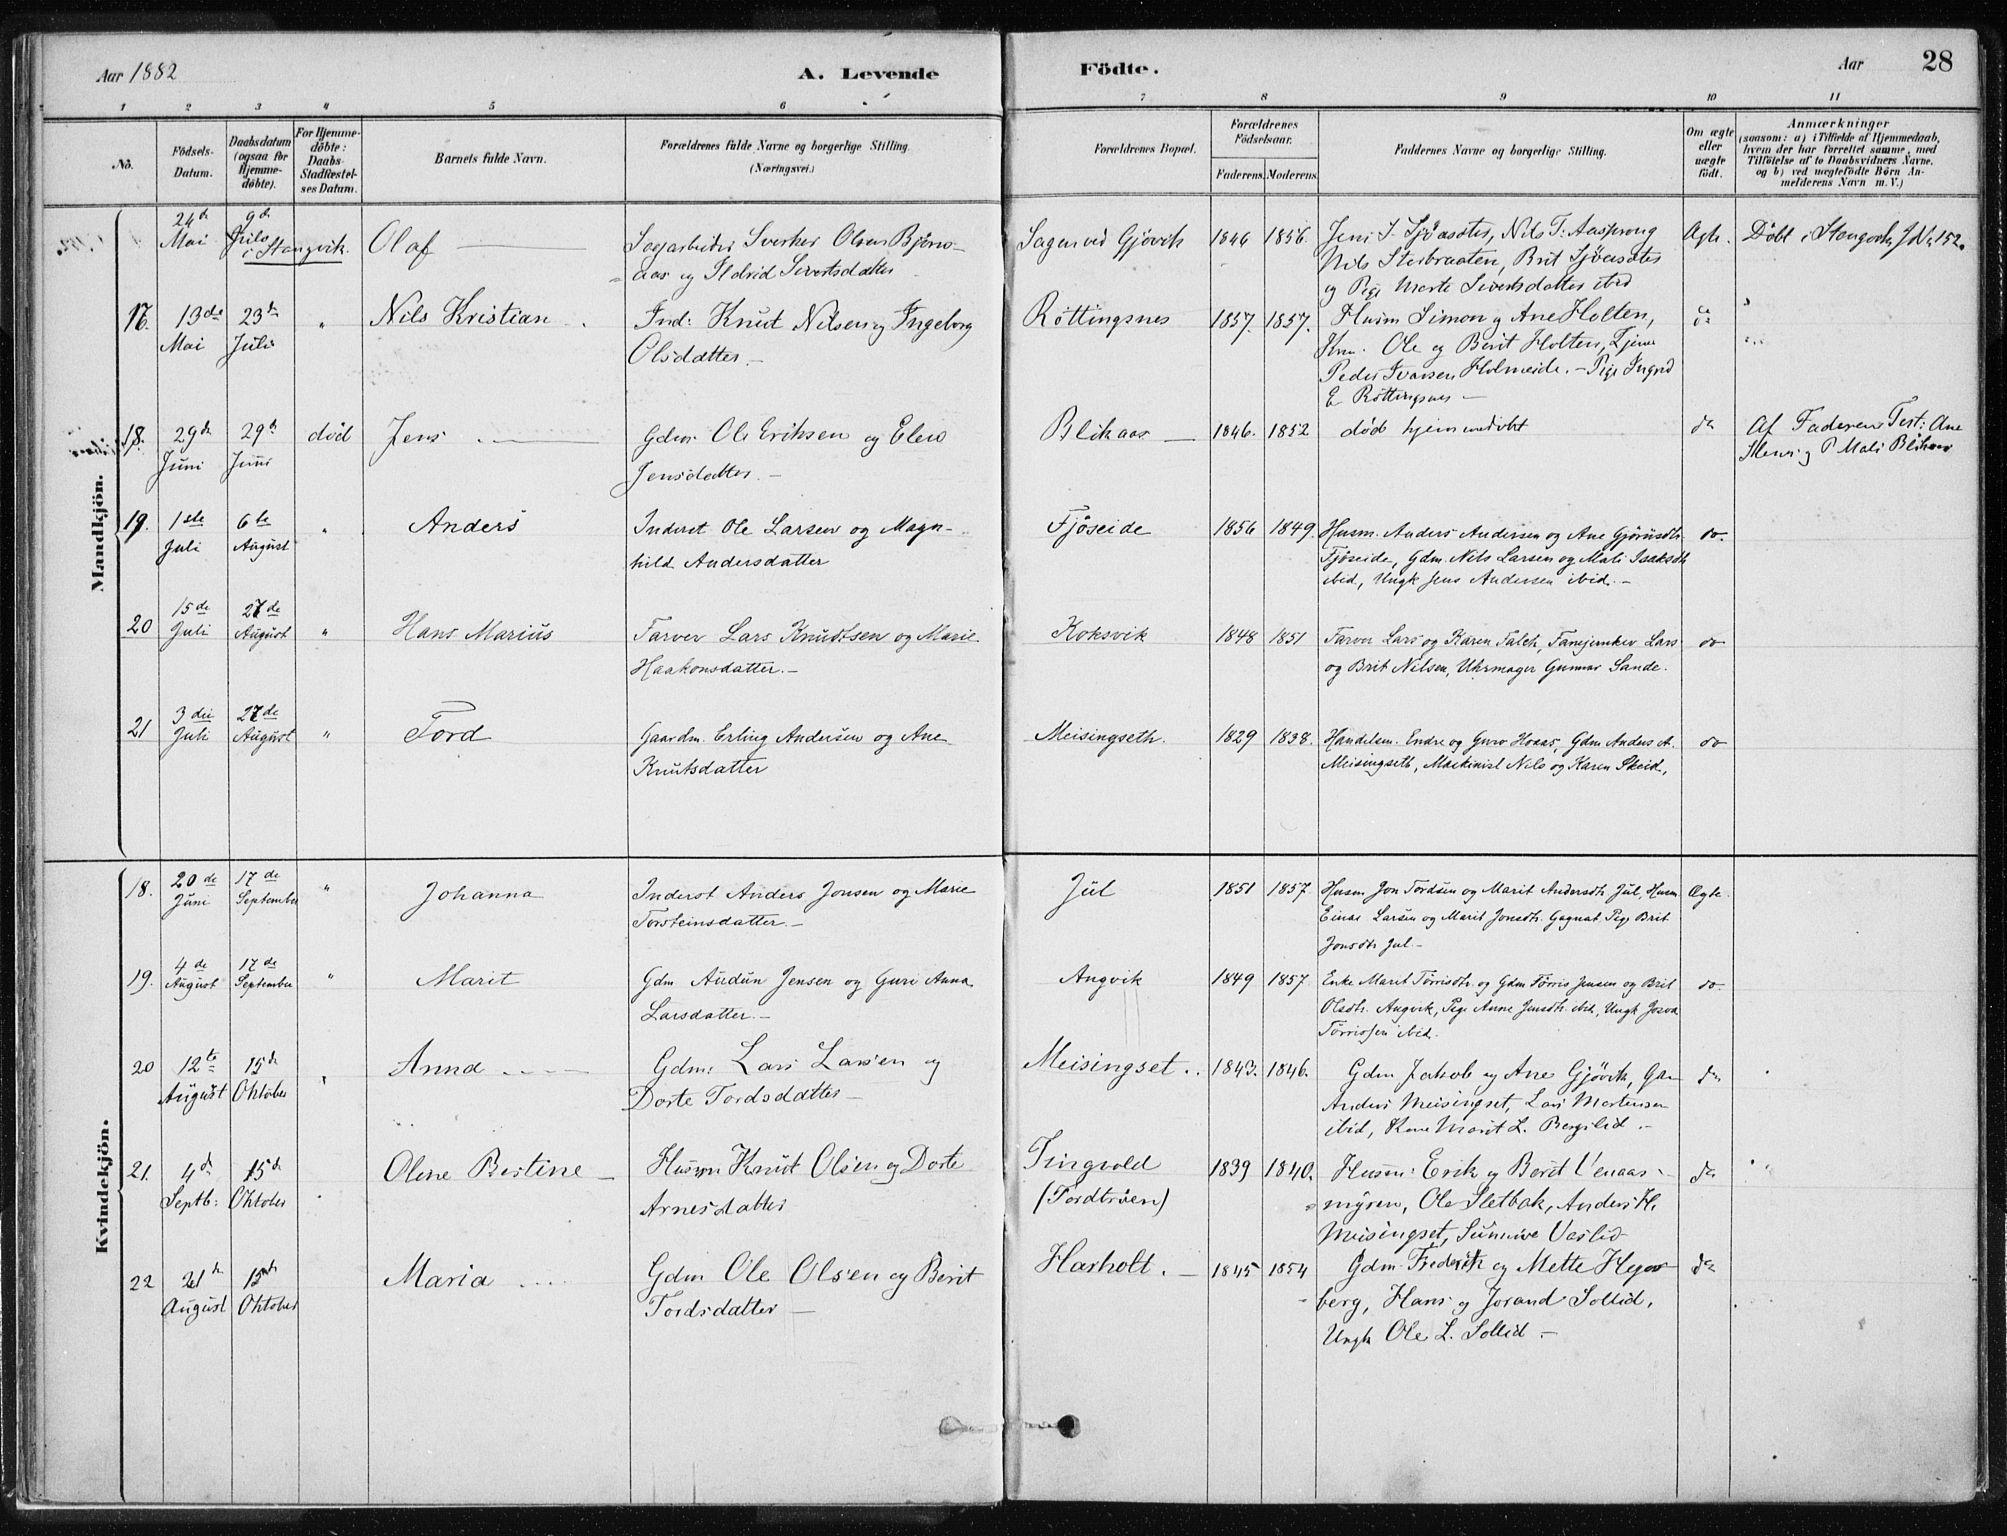 Aar 1882 A. Levende Födte. Aar 28
1 2 3 4 5 6 7 8 9 10 11
No. Födsels-Datum. Daabsdatum (ogsaa for Hjemmedöbte). For Hjemmedöbte: Daabs-Stadfæstelses Datum. Barnets fulde Navn. Forældrenes fulde Navne og borgerlige Stilling. (Næringsvei.) Forældrenes Bopæl. Forældrenes Födselsaar. Faderens. Moderens. Faddernes Navne og borgerlige Stilling. Om ægte eller uægte födt. Anmærkninger (saasom: a) i Tilfælde af Hjemmedaab, hvem der har forrettet samme, med Tilföielse af to Daabsvidners Navne, og b) ved uægtefödte Börn Anmelderens Navn m. V.)
Mandkjön.
24de Mai 9de Juli i Stangvik. Olaf Sagarbeider Sverker Olsen Bjönaas og Ildrid Sivertsdatter Sagen ved Gjövik 1846 1856. Jens J. Sjöasæter, Nils T. Aasprong
Nils Stenbraaten, Brit Sjöasæter
og Pige Marte Sivertsdatter ibid Ægte. Döbt i Stangvik J No 152.
17. 13de Mai 23de Juli " Nils Kristian Ind: Knut Nilsen og Ingeborg
Olsdatter. Röttingsnes 1857. 1857. Husm Simon og Ane Holten,
Ole og Berit Holten, Tjener
Peder Ivarsen Holmeide. – Pige Ingrid
E Röttingsnes – do
18. 29de Juni 29de Juni död Jens Gdm. Ole Eriksen og Elen
Jensdatter. – Blikaas 1846. 1852 död hjemmedöbt do Af Faderen Test: Ane
og P Mali Blikaas
19. 1ste Juli 6te August " Anders Inderst Ole Larsen og Magnhild Andersdatter Fjöseide 1856 1849. Husm. Anders Andersen og Ane Gjörusdtr.
Fjöseide, Gdm. Nils Larsen og Mali Isaksdtr
ibid, Ungk Jens Andersen ibid. – do.
20 15de Juli 27de August " Hans Marius Farver Lars Knudtsen og Marie
Haakonsdatter. – Koksvik 1848 1851 Farver Lars og Karen Falch, Fanejunker Lars
og Brit Nilsen, Uhrmager Gunnar Sande. do
21 3die Juli 27de August " Tord Gaardm. Erling Andersen og Ane
Knutsdatter Meisingseth. 1829 1838. Handelsm. Endre og Guro Hoaas, Gdm Anders A.
Meisingseth, Maskinist Nils og Karen Skeid, do
Kvindekjön.
18. 20de Juni 17de September " Johanna Inderst Anders Jonsen og Marie
Torsteinsdatter. – Jul 1851 1857. Husm Jon Tordsen og Marit Andersdtr. Jul, Husm
Einar Larsen og Marit Jonsdtr. Gagnat, Pige Brit
Jonsdtr Jul – Ægte.
19. 4de August 17de September " Marit Gdm Audun Jensen og Guri Anna
Larsdatter. – Angvik 1849 1857. Enke Marit Törrisdtr. og Gdm Törris Jensen og Brit
Olsdtr. Angvik, Pige Anne Jensdtr. ibid, Ungk Josva
Törrissen ibid. do.
20 12te August 15de Oktober " Anna Gdm: Lars Larsen og
Dorte Tordsdatter – Meisingset. 1843. 1846. Gdm Jakob og Ane Gjövik,
Anders Meisingset, Lars Mortensen
ibid, Kone Marit L. Bergslid. – do
21. 4de Septb: 15de Oktober Oline Bertine Husm Knut Olsen og Dorte
Arnesdatter Tingvold
(Tordtröen) 1839 1840. Husm: Erik og Berit Venaasmyren, Ole Sletbak, Anders K.
Meisingset, Sunnive Vaslid do
22 21de August 15de Oktober Maria Gdm Ole Olsen og Berit
Tordsdatter – Harholt. – 1845 1854 Gdm. Frederik og Mette Hegerberg, Hans og Jorand Sollid,
Ungk Ole L. Sollid – do